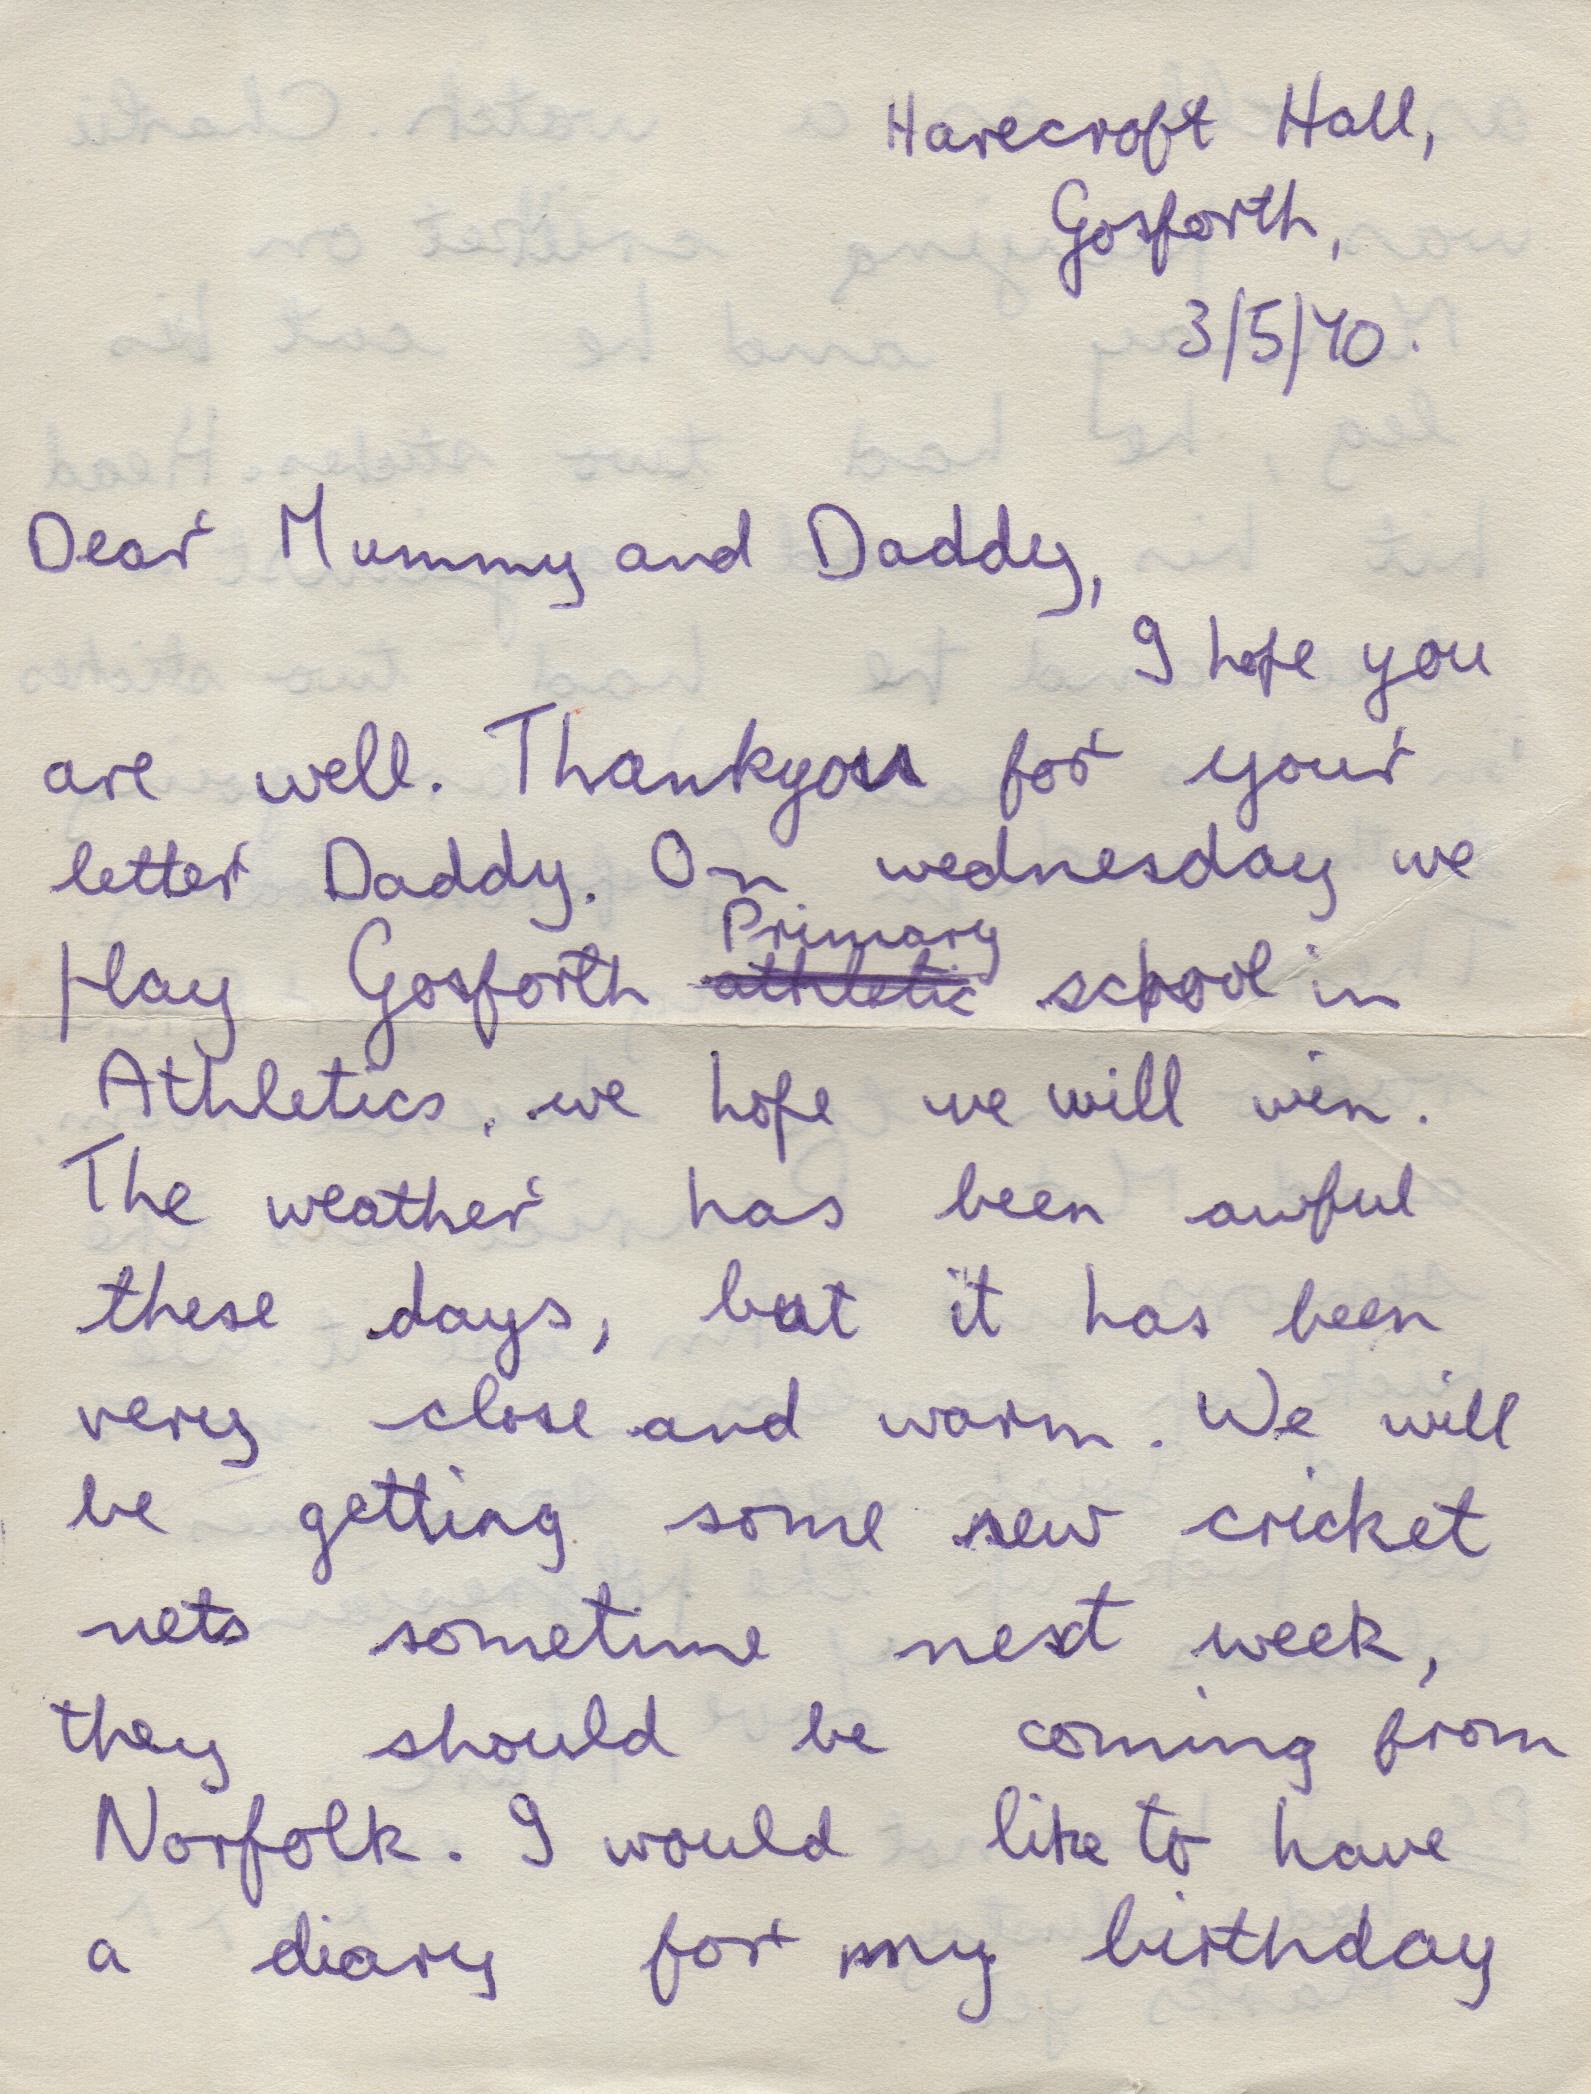 Harecroft Hall,
Gosforth,
3/5/70.
Dear Mummy and Daddy,
I hope you
are well. Thankyou for your
letter Daddy. On wednesday we
Primary
play Gosforth athletic school in
Athletics, we hope we will win.
The weather has been awful
these days, but it has been
very close and warm. We will
be getting some new cricket
nets sometime next week,
they should be coming from
Norfolk. I would like to have
a diary for my birthday